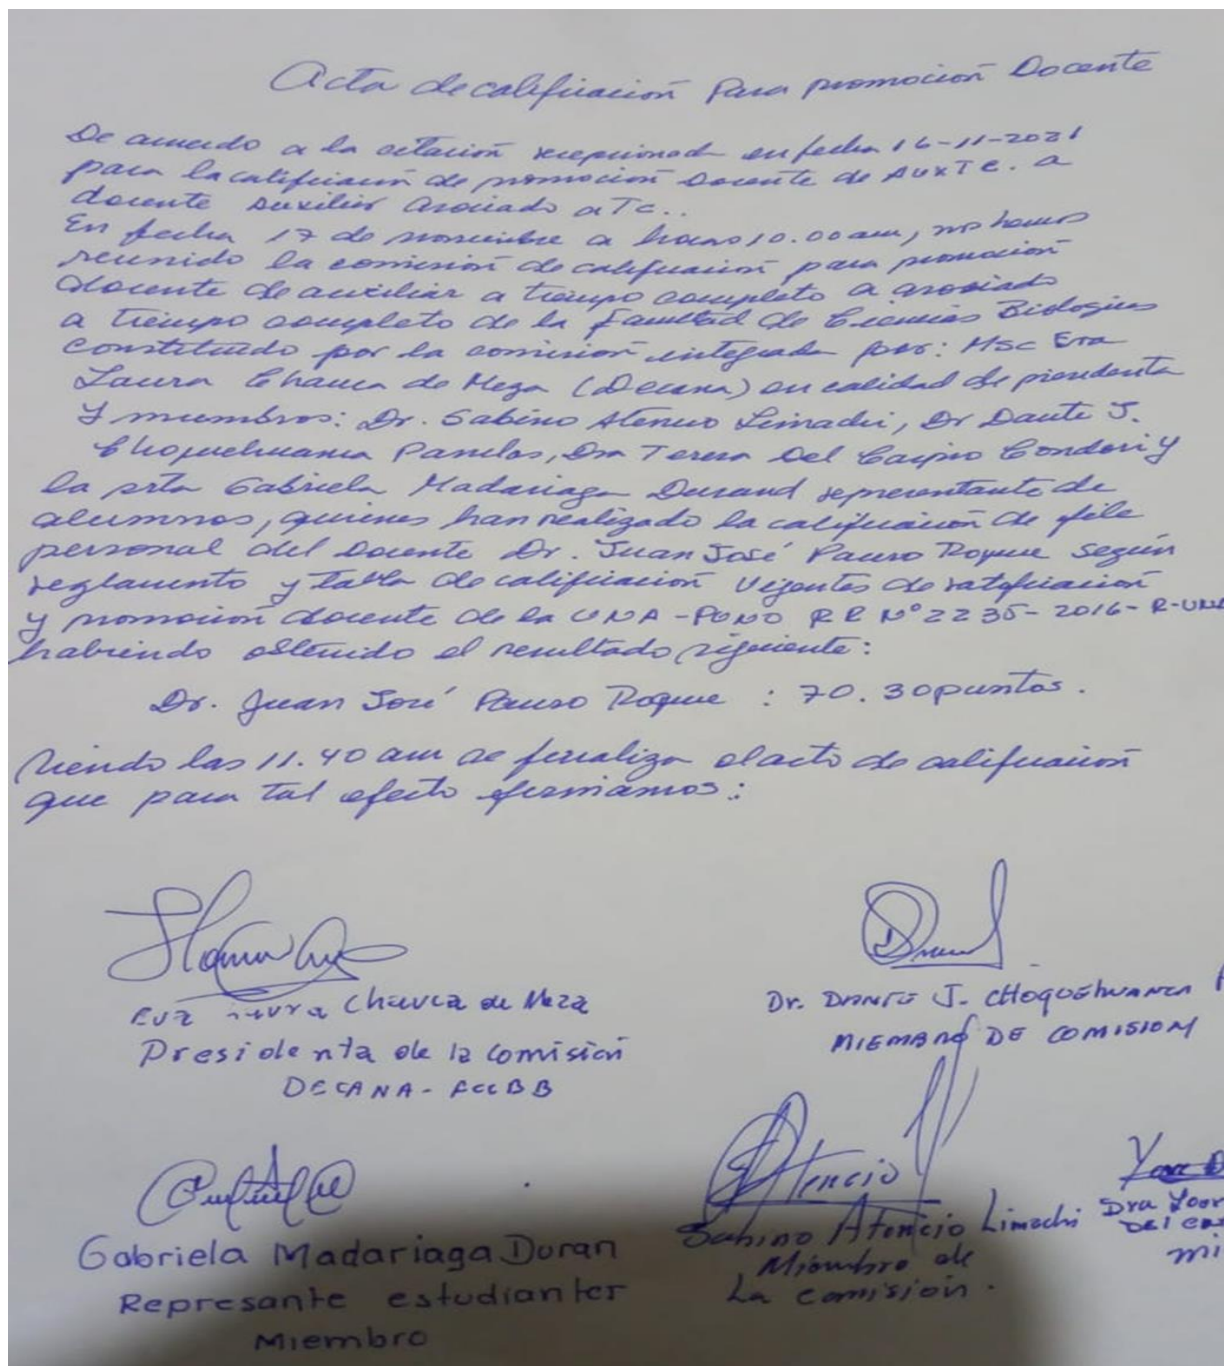 Acta de calificación para promoción Docente
De acuerdo a la citación recepcionada en fecha 16-11-2021
para la calificación de promoción Docente de Aux T C. a
docente auxiliar asociado a Tc..
En fecha 17 de noviembre a horas 10.00 am, nos hemos
reunido la comisión de calificación para promoción
docente de auxiliar a tiempo completo a asociado
a tiempo completo de la Facultad de Ciencias Biologicas
constituido por la comisión integrada por: MSc Eva
Laura Chauca de Meza (Decana) en calidad de presidenta
y miembros: Dr. Sabino Atencio Limachi, Dr Dante J.
Choquehuanca Panclas, Dra Teresa Del Carpio Condori y
la srta Gabriela Madariaga Durand representante de
alumnos, quienes han realizado la calificación de file
personal del Docente Dr. Juan José Pauro Roque según
reglamento y tabla de calificación vigentes de ratificación
y promoción docente de la UNA-PUNO RR N°2235-2016-R-UNA
habiendo obtenido el resultado siguiente:
Dr. Juan José Pauro Roque : 70.30 puntos.
Siendo las 11.40 am se finaliza el acto de calificación
que para tal efecto firmamos:
Eva Laura Chauca de Meza
Presidenta de la Comisión
DECANA-FCCBB
Dr. DANTE J. CHOQUEHUANCA
MIEMBRO DE COMISION
Gabriela Madariaga Duran
Represante estudianter
Miembro
Atencio
Sabino Atencio Limachi
Miembro de
La comisión.
Dra
Del
mi